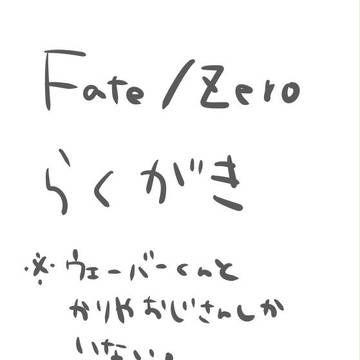 Fate/Zero
らくがき
※ウェーバーくんと
かりやおじさんしか
いない。